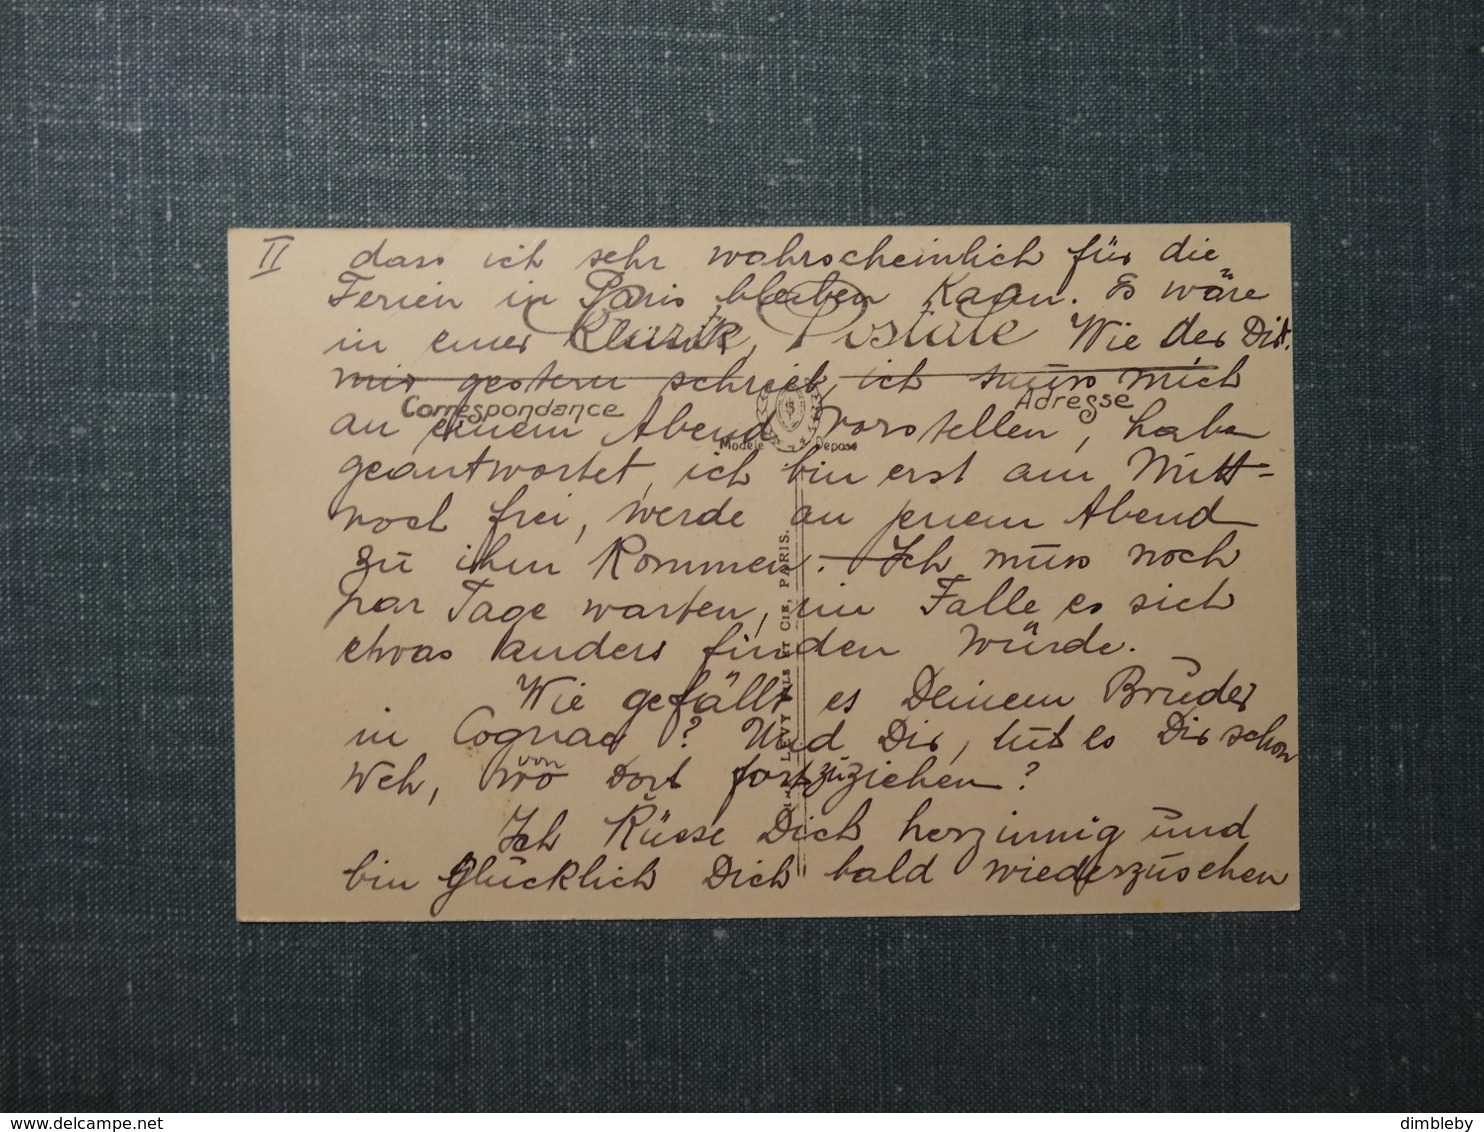 II dass ich sehr wahrscheinlich für die
Ferien in Paris bleiben kann. Es wäre
in einer Klinik, Wie der Dir.
Carte Postale
mir gestern schrieb, ich muss mich
Correspondance
Adresse
an einem Abend vorstellen, habe
Modèle Déposé
geantwortet, ich bin erst am Mitt-
woch frei, werde an jenem Abend
zu ihm kommen. — Ich muss noch
par Tage warten, im Falle es sich
etwas anders finden würde.
Wie gefällt es Deinem Bruder
in Cognac? Und Dir, tut es Dir schon
weh, wo von dort fortzuziehen?
Ich küsse Dich herzinnig und
bin glücklich Dich bald wiederzusehen
LÉVY FILS ET CIE, PARIS.
delcampe.net
dimbleby